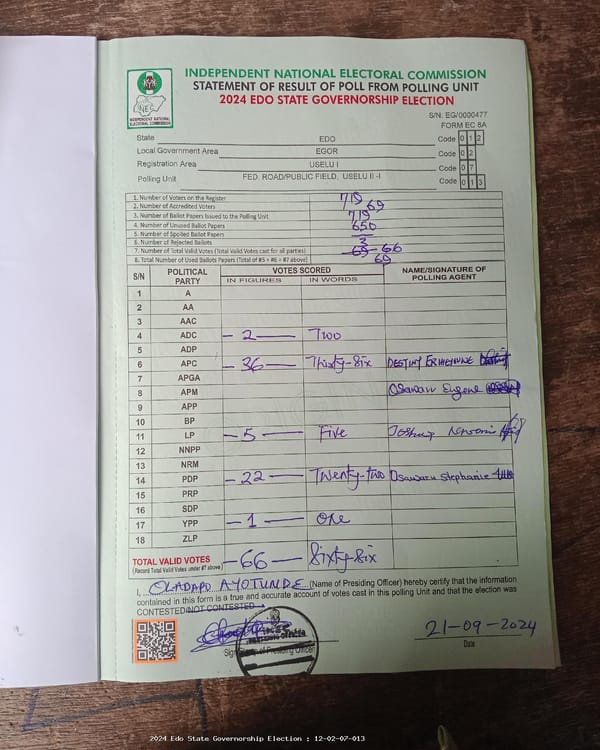 INDEPENDENT NATIONAL ELECTORAL COMMISSION
STATEMENT OF RESULT OF POLL FROM POLLING UNIT
2024 EDO STATE GOVERNORSHIP ELECTION
INDEPENDENT NATIONAL ELECTORAL COMMISSION
S/N: EG/0000477
FORM EC 8A
State EDO Code 0 1 2
Local Government Area EGOR Code 0 2
Registration Area USELU I Code 0 7
Polling Unit FED. ROAD/PUBLIC FIELD, USELU II -I Code 0 1 3
1. Number of Voters on the Register 719
2. Number of Accredited Voters 69
3. Number of Ballot Papers Issued to the Polling Unit 719
4. Number of Unused Ballot Papers 650
5. Number of Spoiled Ballot Papers —
6. Number of Rejected Ballots 3
7. Number of Total Valid Votes (Total Valid Votes cast for all parties) 69 66
8. Total Number of Used Ballots Papers (Total of #5 + #6 + #7 above) 69
S/N POLITICAL PARTY VOTES SCORED NAME/SIGNATURE OF POLLING AGENT
IN FIGURES IN WORDS
1 A
2 AA
3 AAC
4 ADC - 2 — Two
5 ADP
6 APC - 36 — Thirty-Six DESTINY
7 APGA
8 APM Osawaru Eugene
9 APP
10 BP
11 LP - 5 — Five Joshua
12 NNPP
13 NRM
14 PDP - 22 — Twenty-two Osawaru Stephanie
15 PRP
16 SDP
17 YPP - 1 — One
18 ZLP
TOTAL VALID VOTES - 66 — Sixty-Six
(Record Total Valid Votes under #7 above)
I, OLADAPO AYOTUNDE (Name of Presiding Officer) hereby certify that the information
contained in this form is a true and accurate account of votes cast in this polling Unit and that the election was
CONTESTED/NOT CONTESTED
21-09-2024
Signature of Presiding Officer Date
2024 Edo State Governorship Election : 12-02-07-013